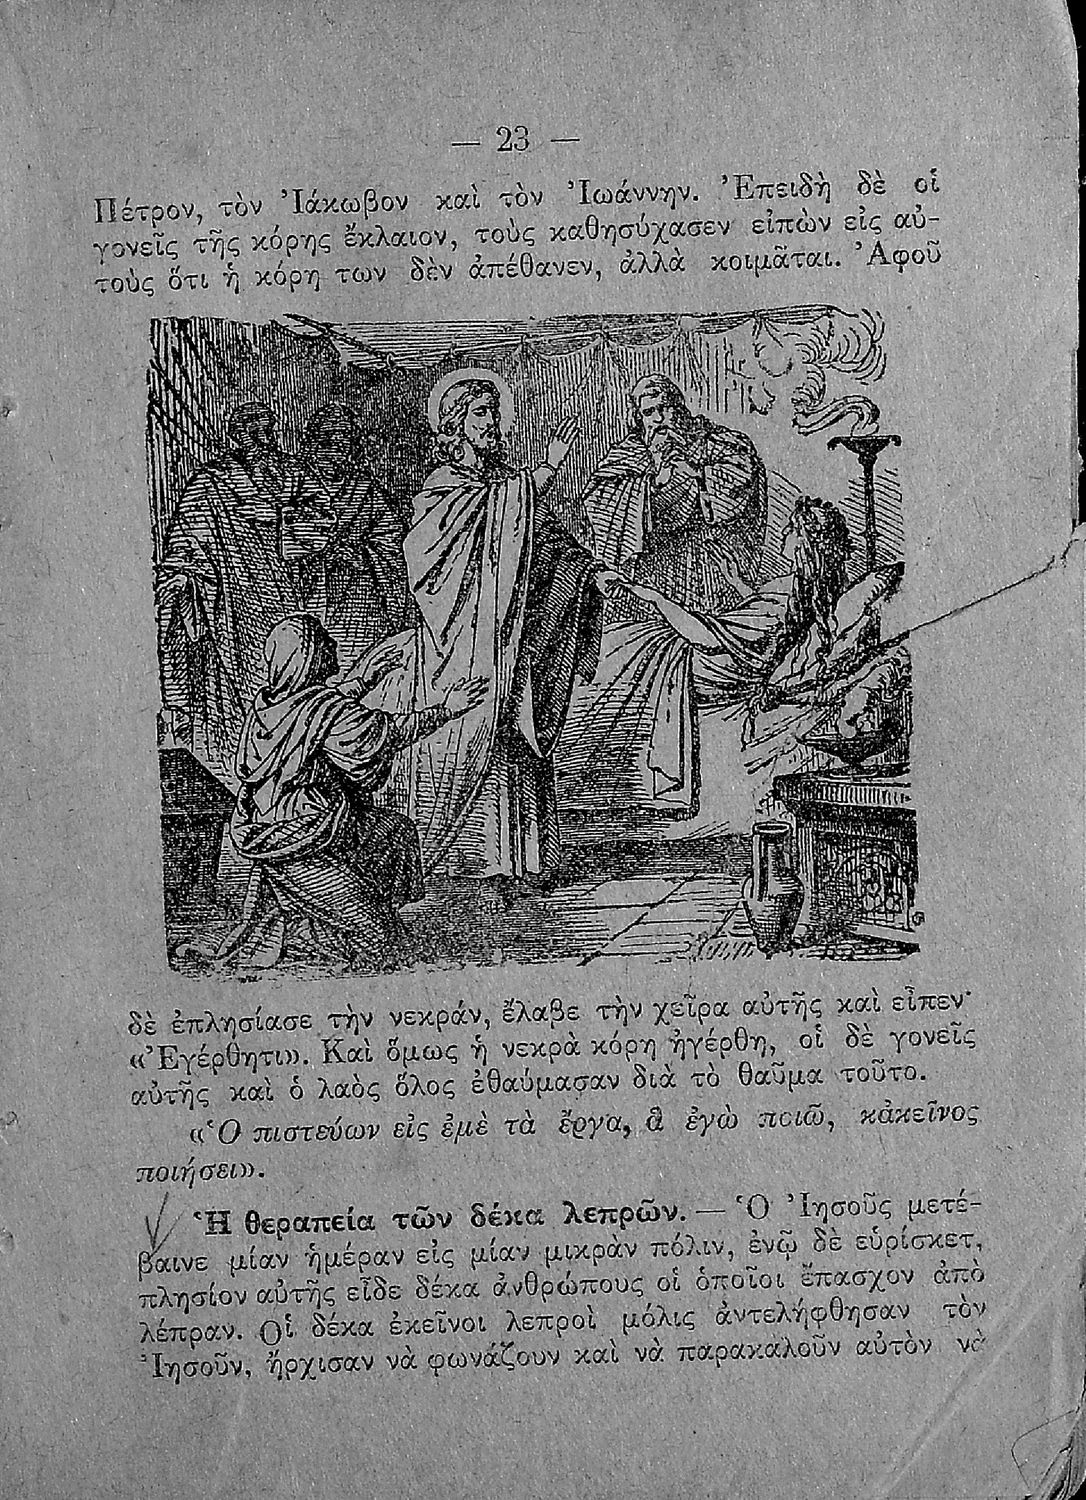 — 23 —
Πέτρον, τὸν Ἰάκωβον καὶ τὸν Ἰωάννην. Ἐπειδὴ δὲ οἱ
γονεῖς τῆς κόρης ἔκλαιον, τοὺς καθησύχασεν εἰπὼν εἰς αὐ-
τοὺς ὅτι ἡ κόρη των δὲν ἀπέθανεν, ἀλλὰ κοιμᾶται. Ἀφοῦ
δὲ ἐπλησίασε τὴν νεκράν, ἔλαβε τὴν χεῖρα αὐτῆς καὶ εἶπεν·
«Ἐγέρθητι». Καὶ ὅμως ἡ νεκρὰ κόρη ἠγέρθη, οἱ δὲ γονεῖς
αὐτῆς καὶ ὁ λαὸς ὅλος ἐθαύμασαν διὰ τὸ θαῦμα τοῦτο.
«Ὁ πιστεύων εἰς ἐμὲ τὰ ἔργα, ἃ ἐγὼ ποιῶ, κἀκεῖνος
ποιήσει».
Ἡ θεραπεία τῶν δέκα λεπρῶν. — Ὁ Ἰησοῦς μετέ-
βαινε μίαν ἡμέραν εἰς μίαν μικρὰν πόλιν, ἐνῷ δὲ εὑρίσκετ,
πλησίον αὐτῆς εἶδε δέκα ἀνθρώπους οἱ ὁποῖοι ἔπασχον ἀπὸ
λέπραν. Οἱ δέκα ἐκεῖνοι λεπροὶ μόλις ἀντελήφθησαν τὸν
Ἰησοῦν, ἤρχισαν νὰ φωνάζουν καὶ νὰ παρακαλοῦν αὐτὸν νὰ